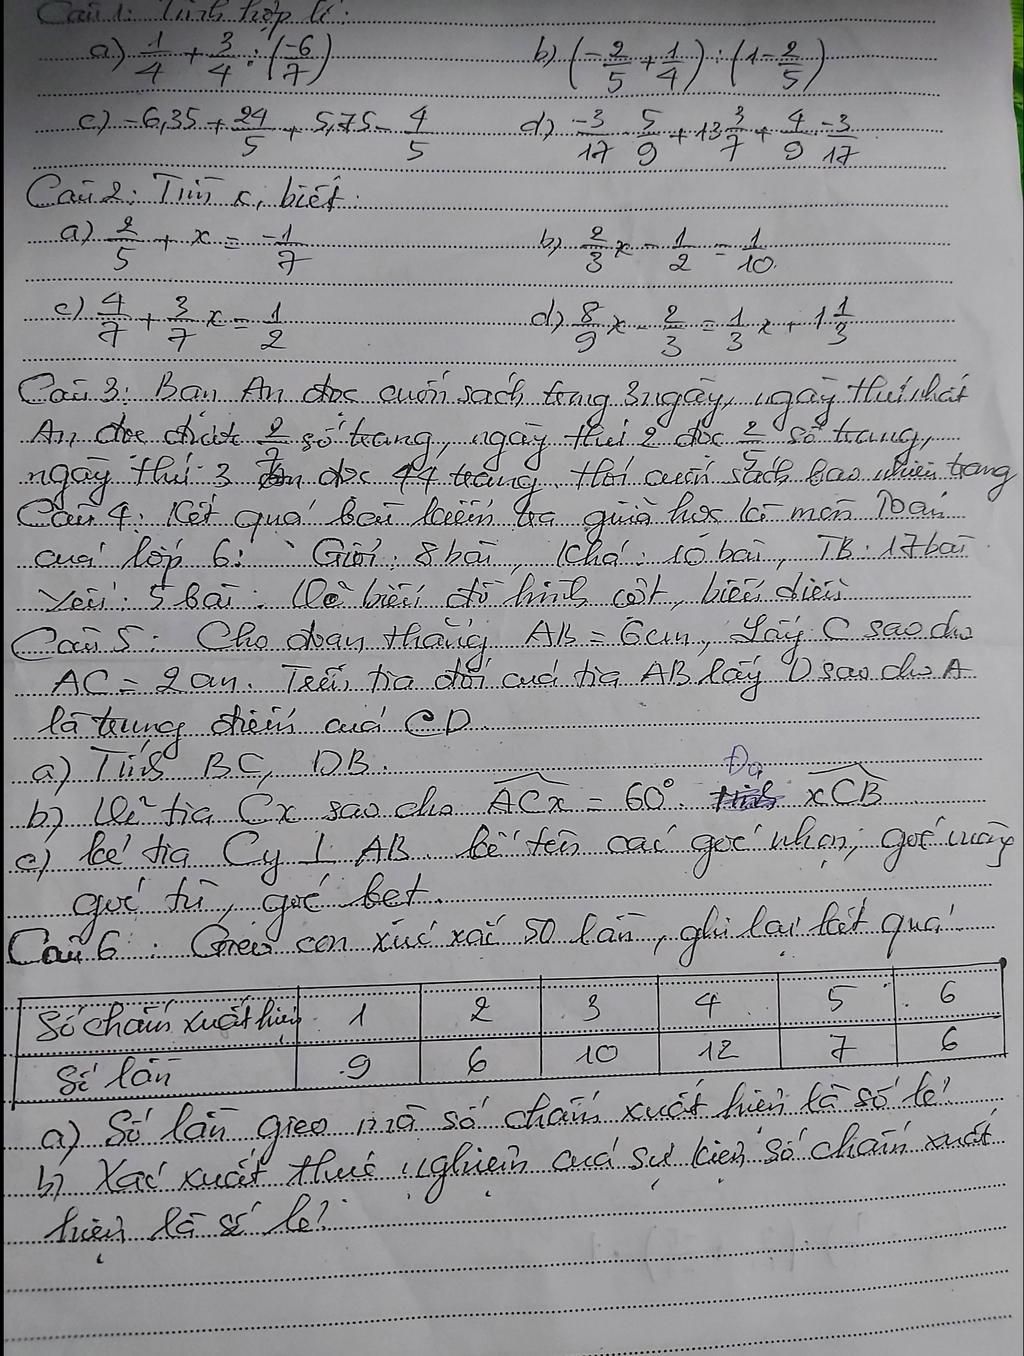 Câu 1: Tính hợp lí:
a) 1/4 + 3/4 : (-6/7) b) (-2/5 + 1/4) : (1 - 2/5)
c) -6,35 + 24/5 + 5,75 - 4/5 d) -3/17 . 5/9 + 13 3/7 + 4/9 . -3/17
Câu 2: Tìm x, biết:
a) 2/5 + x = -1/7 b) 2/3 x - 1/2 = 1/10
c) 4/7 + 3/7 x = 1/2 d) 8/9 x - 2/3 = 1/3 x + 1 1/3
Câu 3: Bạn An đọc cuốn sách trong 3 ngày, ngày thứ nhất
An đọc được 2/7 số trang, ngày thứ 2 đọc 2/5 số trang,
ngày thứ 3 An đọc 44 trang. Hỏi cuốn sách bao nhiêu trang
Câu 4: Kết quả bài kiểm tra giữa học kì môn Toán
của lớp 6: Giỏi: 8 bài, Khá: 10 bài, TB: 17 bài
Yếu: 5 bài. Vẽ biểu đồ hình cột, biểu diễn
Câu 5: Cho đoạn thẳng AB = 6cm, Lấy C sao cho
AC = 2cm. Trên tia đối của tia AB lấy D sao cho A
là trung điểm của CD.
a) Tính BC, DB.
b) Vẽ tia Cx sao cho ACx = 60°. Đo xCB
c) kẻ tia Cy ⊥ AB. kể tên các góc nhọn, góc vuông
góc tù, góc bẹt.
Câu 6: Gieo con xúc xắc 50 lần, ghi lại kết quả
Số chấm xuất hiện 1 2 3 4 5 6
Số lần 9 6 10 12 7 6
a) Số lần gieo mà số chấm xuất hiện là số lẻ?
b) Xác xuất thực nghiệm của sự kiện số chấm xuất
hiện là số lẻ?